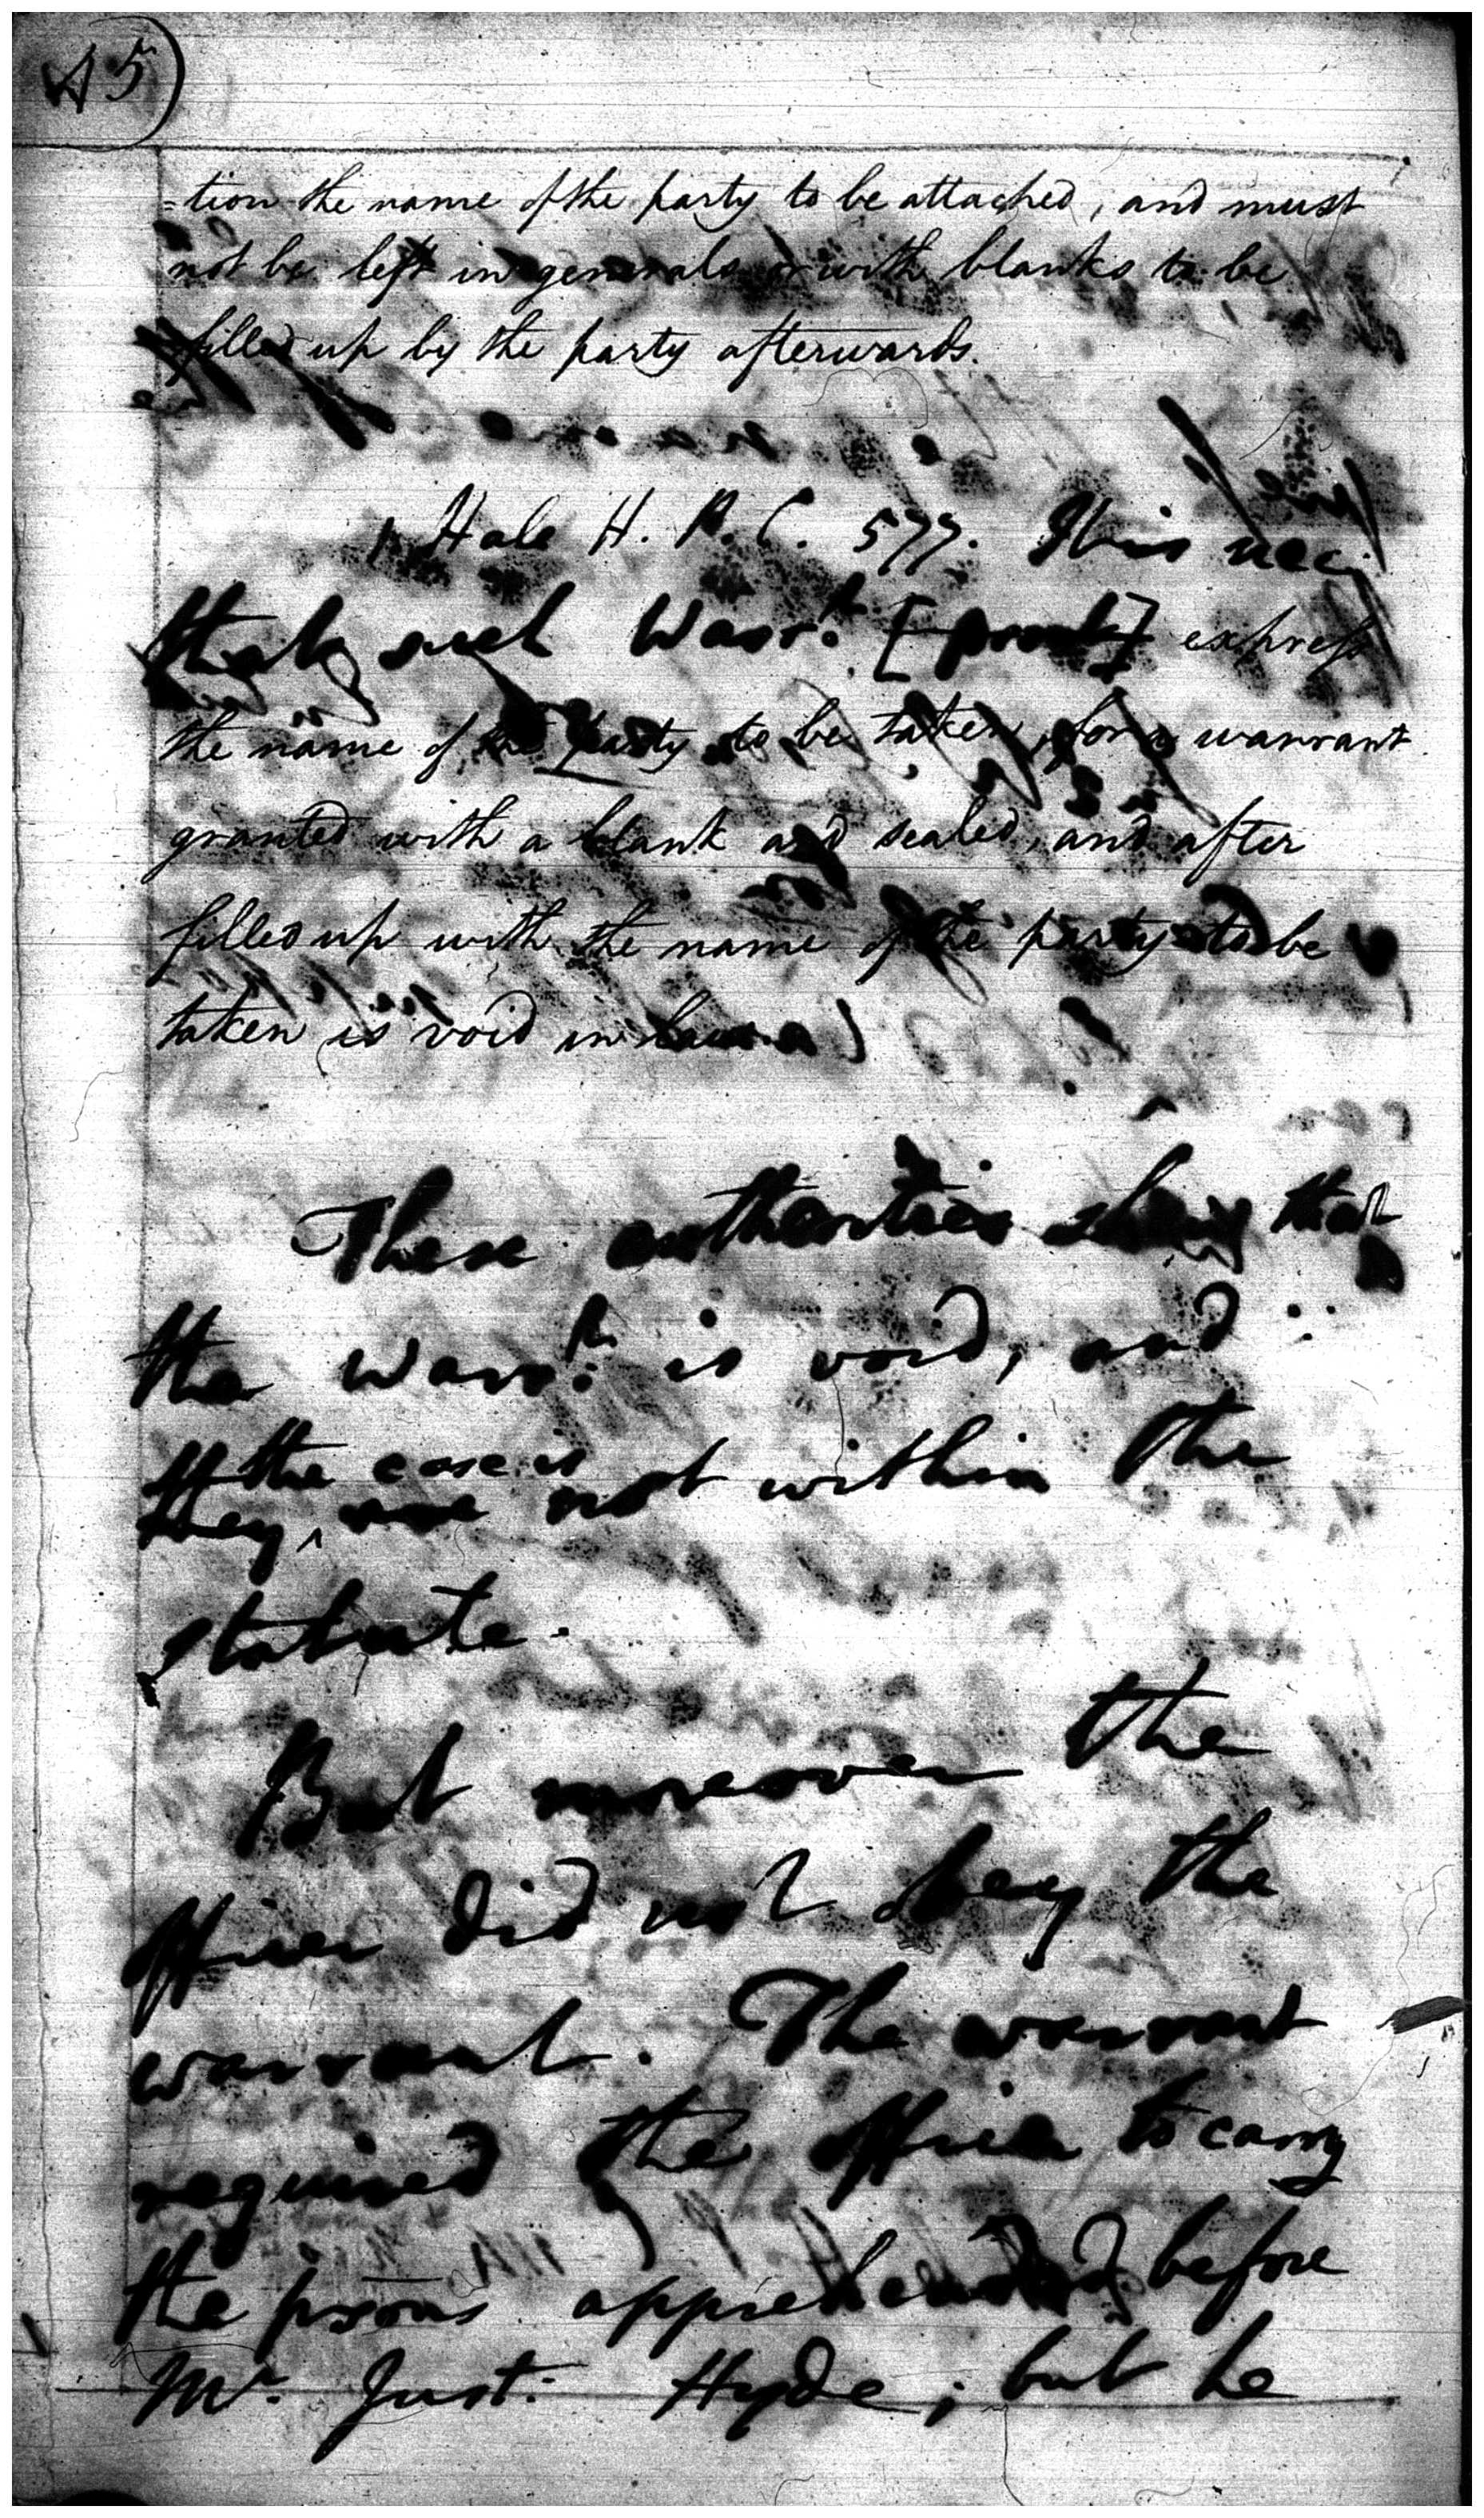 45)
=tion the name of the party to be attached, and must
not be left in generals or with blanks to be
filled up by the party afterwards.
1 Hale H. P. C. 577. This nec:
that such Warr.t [pro] express
the name of the party to be taken, for a warrant
granted with a blank and sealed, and after
filled up with the name of the party to be
taken is void in law.
These authorities shew that
the warr.t is void, and
if the case is
they, are not within the
statute.
But moreover the
officer did not obey the
warrant. The warrant
required the officer to carry
the p̄sons apprehended before
Mr. Just: Hyde; but he